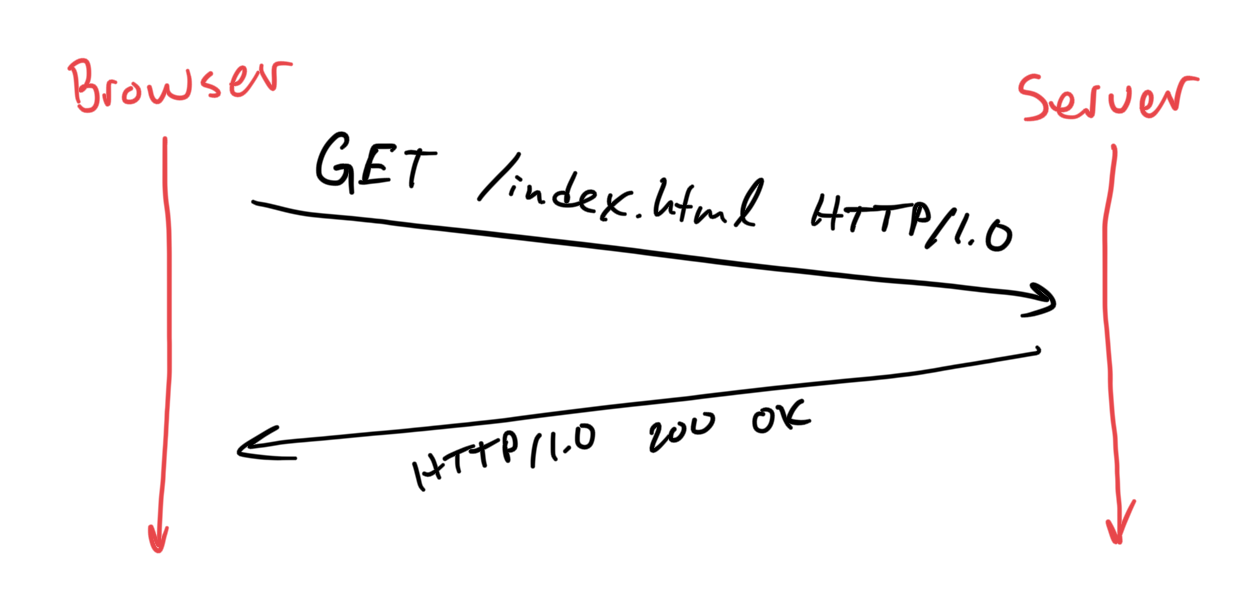 Browser
Server
GET /index.html HTTP/1.0
HTTP/1.0 200 OK